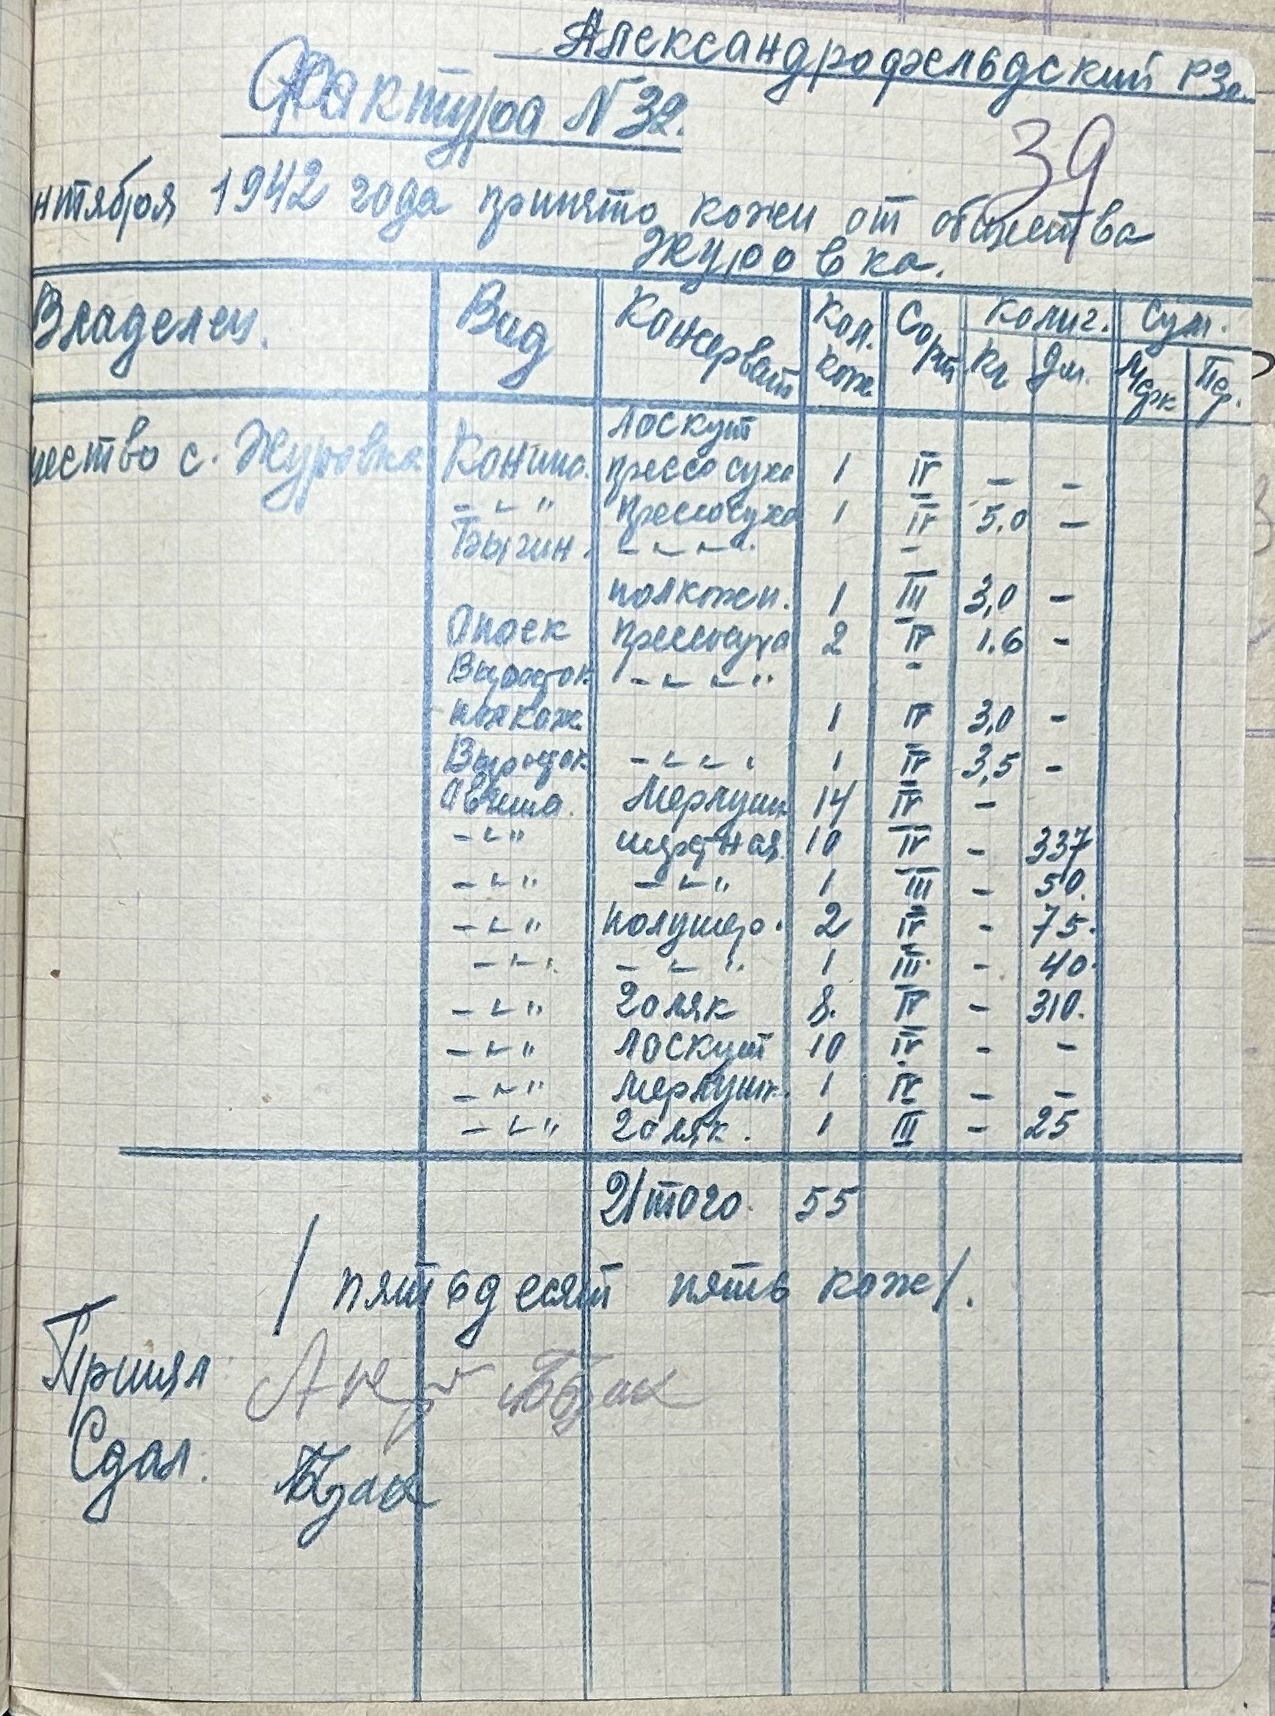 Александрофельдский РЗо.
Фактура N32.
39
нтября 1942 года принято кожи от общества
Журовка.
Владелец. Вид Консерват Кол. кож Сорт Колич. Сум.
Кг Дм. Марк Пф.
лоскут
чество с. Журовка Конина. прессо суха 1 IV - -
- " - " Прессосуха 1 IV 5,0 -
Бычин. - " - "
полкожи. 1 III 3,0 -
Опоек Прессосуха 2 IV 1.6 -
Выросток - " - "
полкож. 1 IV 3,0 -
Выросток - " - " 1 IV 3,5 -
Овчина. Мерлушк 14 IV -
- " - шерстная 10 IV - 337
- " - - " - 1 III - 50.
- " - полушер. 2 IV - 75.
- " - - " - 1 III - 40.
- " - Голяк 8. IV - 310.
- " - лоскут 10 IV - -
- " - Мерлушк. 1 IV - -
- " - Голяк. 1 III - 25
Итого. 55
/ пятьдесят пять кож/.
Принял:
Сдал.